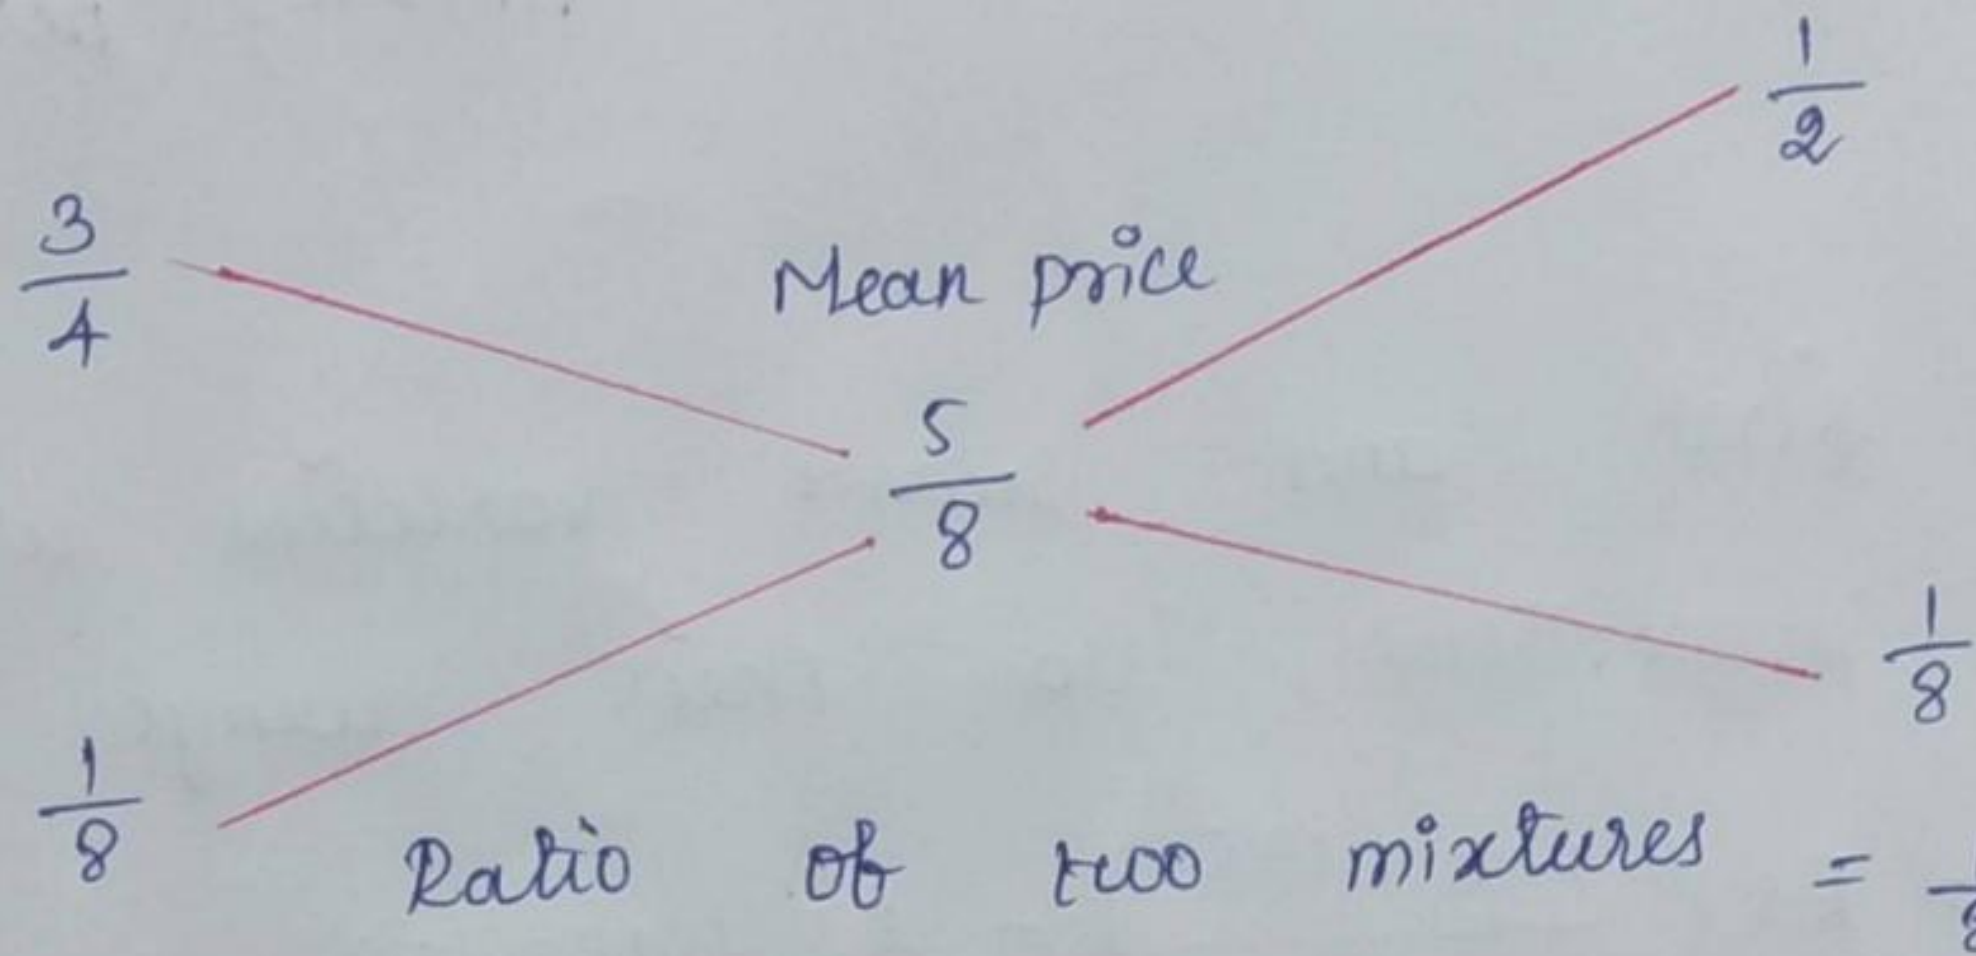 1/2
3/4
Mean price
5/8
1/8
1/8
Ratio of two mixtures =